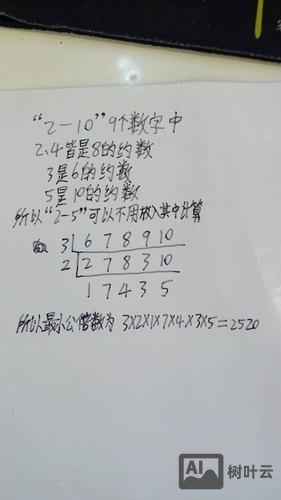 “2-10”9个数字中
2.4皆是8的约数
3是6的约数
5是10的约数
所以“2-5”可以不用放入其中计算
3 6 7 8 9 10
2 2 7 8 3 10
1 7 4 3 5
所以最小公倍数为 3×2×1×7×4×3×5=2520
AI 树叶云